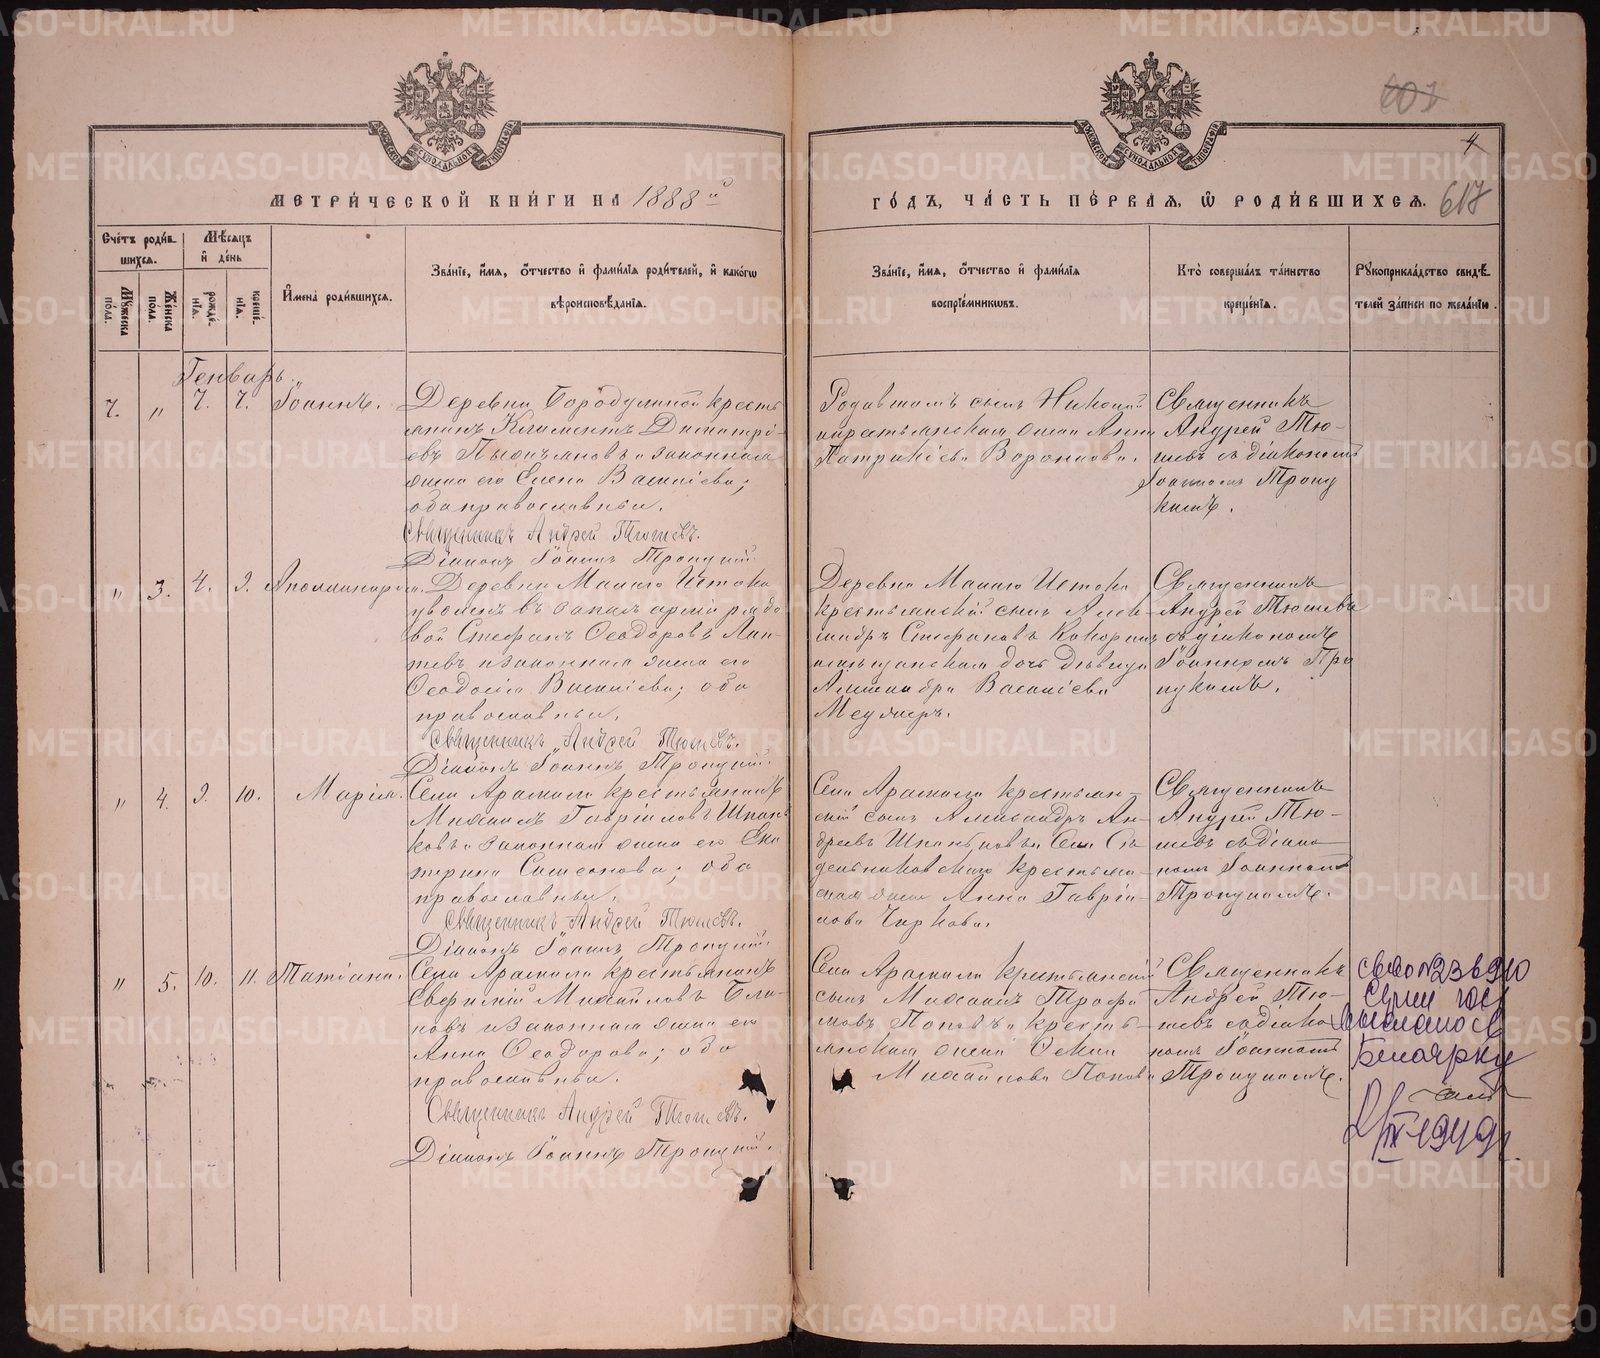 МЕТРИ́ЧЕСКОЙ КНИ́ГИ НА 1888й
ГО́ДЪ, ЧА́СТЬ ПЕ́РВАЯ, Ѡ РОДИ́ВШИХСЯ. 617
4
Сче́тъ роди́вшихся.
Мѣ́сяцъ и де́нь
Му́жеска по́ла.
Же́нска по́ла.
рожде́нїя.
креще́нїя.
Имена̀ роди́вшихся.
Зва́нїе, и́мя, о́тчество и фами́лїя роди́телей, и како́гѡ вѣроисповѣ́данїя.
Зва́нїе, и́мя, о́тчество и фами́лїя воспрїе́мникѡвъ.
Кто̀ соверша́лъ та́инство креще́нїя.
Рꙋкоприкла́дство свидѣ́телей за́писи по жела́нїю.
Генварь.
7. „ 7. 7. Іоаннъ.
Деревни Бородулиной кресть
янинъ Климентъ Димитрі-
евъ и законная
жена его Елена Василіева;
оба православные.
Священникъ Андрей Тюшевъ.
Діаконъ Іоаннъ Троицкій.
Родившимъ сынъ Николай
и крестьянская жена Анна
Воронцова.
Священникъ
Андрей Тю-
шевъ съ діакономъ
Іоанномъ Троиц
кимъ.
„ 3. 4. 9. Аполлинарія.
Деревни Малаго Истока
уволен въ запас арміи рядо
вой Стефанъ Ѳеодоровъ Лап-
тевъ и законная жена его
Ѳеодосія Василіева; оба
православные.
Священникъ Андрей Тюшевъ.
Діаконъ Іоаннъ Троицкій.
Деревни Малаго Истока
крестьянскій сынъ Алек-
сандръ Стефановъ Кокорин
мѣщанская дочь дѣвица
Александра Василіева
Священникъ
Андрей Тюшевъ
съ діакономъ
Іоанномъ Тро
ицкимъ.
„ 4. 9. 10. Марія.
Села Арамили крестьянинъ
Михаилъ Гавріиловъ Шпань
ковъ и законная жена его Ека
терина Симеонова; оба
православные.
Священникъ Андрей Тюшевъ.
Діаконъ Іоаннъ Троицкій.
Села Арамили крестьян-
скій сынъ Александръ Ан-
дреевъ Шпаньковъ и Села
крестьян-
ская жена Анна Гавріи-
лова Чиркова.
Священникъ
Андрей Тю-
шевъ съ діако
номъ Іоанномъ
Троицкимъ.
„ 5. 10. 11. Татіана.
Села Арамили крестьянинъ
Евфимій Михайловъ Бли-
новъ и законная жена его
Анна Ѳеодорова; оба
православные.
Священникъ Андрей Тюшевъ.
Діаконъ Іоаннъ Троицкій.
Села Арамили крестьянскій
сынъ Михаилъ Трофи
мовъ Поповъ и кресть-
янская жена
Михайлова Попова
Священникъ
Андрей Тю-
шевъ съ діако
номъ Іоанномъ
Троицкимъ.
выслано в
Белоярку
IX-1949г.